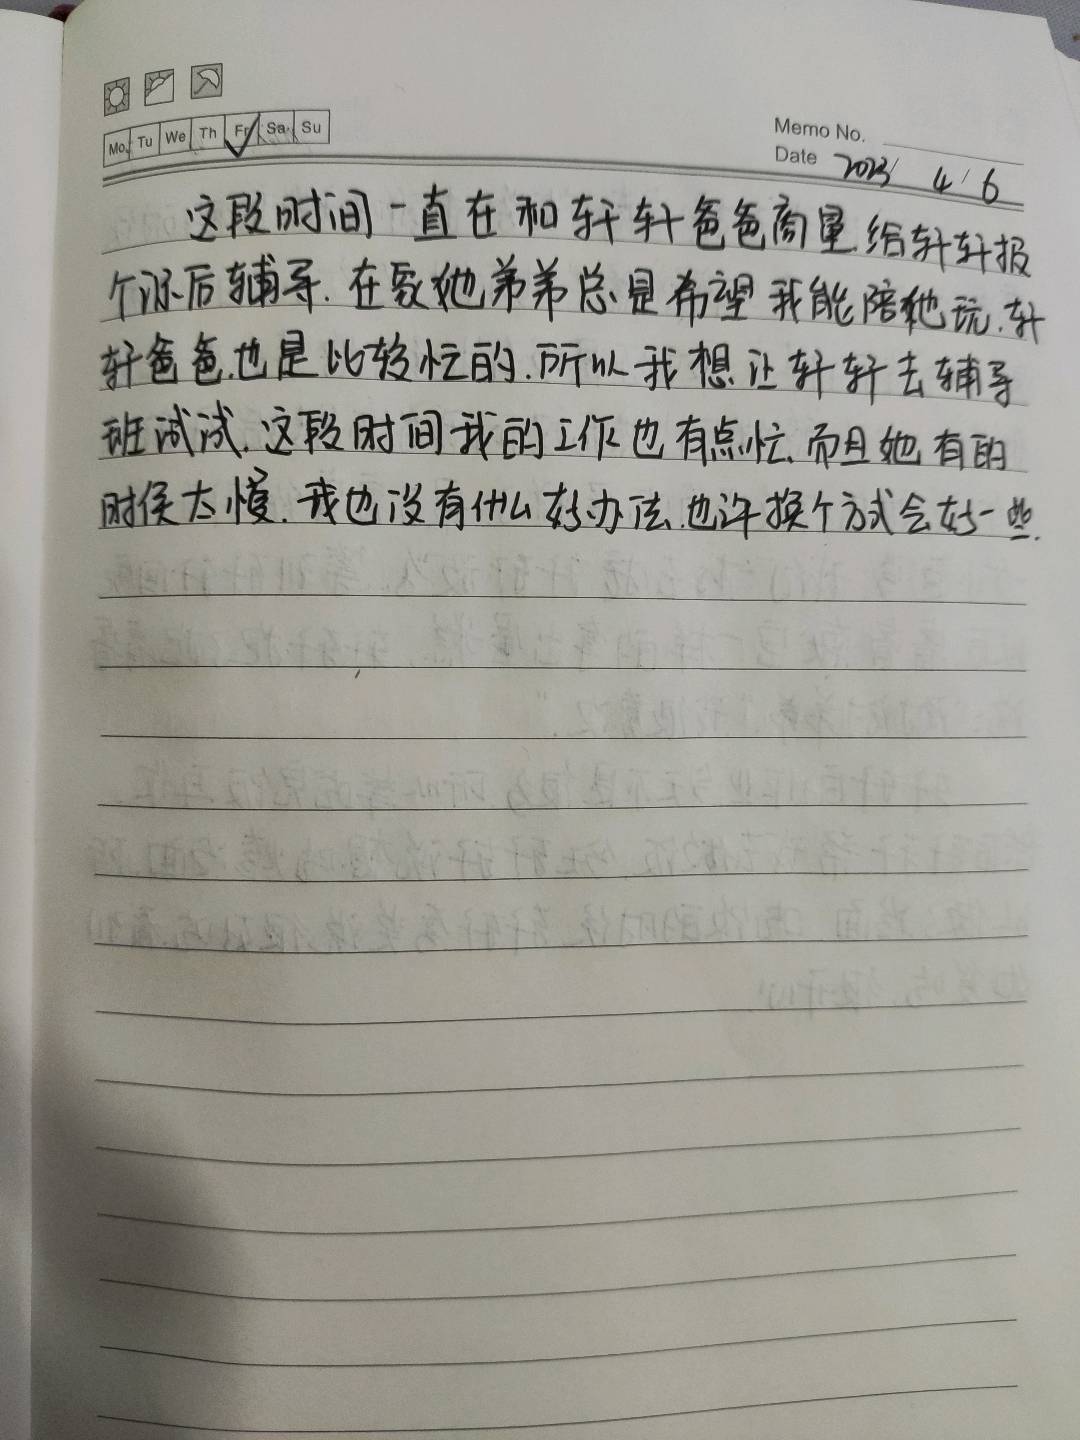 Mo. Tu We Th Fr Sa Su
Memo No.
Date 2023 / 4 / 6
这段时间一直在和轩轩爸爸商量给轩轩报
个课后辅导.在家她弟弟总是希望我能陪他玩.轩
轩爸爸.也是比较忙的.所以我想让轩轩去辅导
班试试.这段时间我的工作也有点忙.而且她有的
时候太慢.我也没有什么好办法.也许换个方式会好一些.